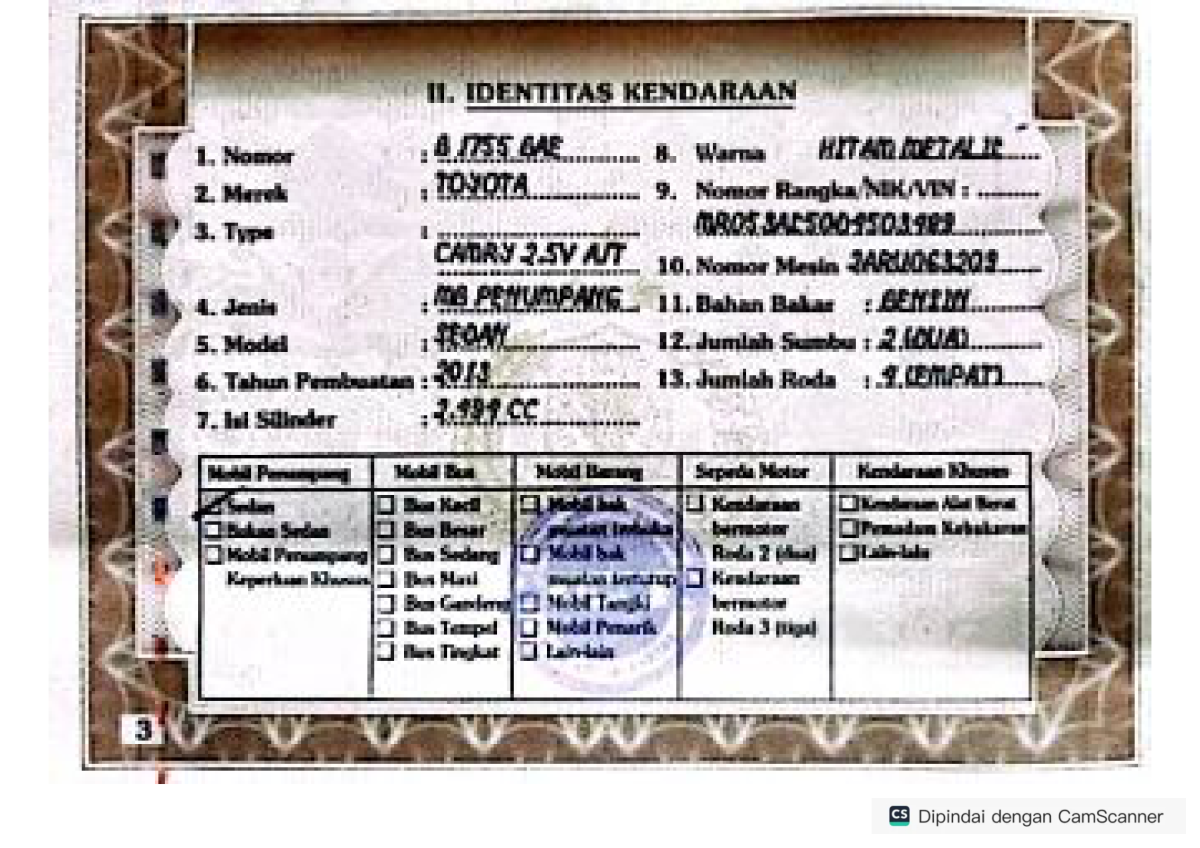 II. IDENTITAS KENDARAAN
1. Nomor : B 1755 BAE
2. Merek : TOYOTA
3. Type :
CAMRY 2.5V A/T
4. Jenis : MB PENUMPANG
5. Model : SEDAN
6. Tahun Pembuatan : 2013
7. Isi Silinder : 2.494 CC
8. Warna HITAM METALIK
9. Nomor Rangka/NIK/VIN :
10. Nomor Mesin 2ARU063209
11. Bahan Bakar : BENSIN
12. Jumlah Sumbu : 2 (DUA)
13. Jumlah Roda : 4 (EMPAT)
Mobil Penumpang
Sedan
Bukan Sedan
Mobil Penumpang
Keperluan Khusus
Mobil Bus
Bus Kecil
Bus Besar
Bus Sedang
Bus Maxi
Bus Gandeng
Bus Tempel
Bus Tingkat
Mobil Barang
Mobil bak
muatan terbuka
Mobil bak
muatan tertutup
Mobil Tangki
Mobil Penarik
Lain-lain
Sepeda Motor
Kendaraan
bermotor
Roda 2 (dua)
Kendaraan
bermotor
Roda 3 (tiga)
Kendaraan Khusus
Kendaraan Alat Berat
Pemadam Kebakaran
Lain-lain
3
CS Dipindai dengan CamScanner